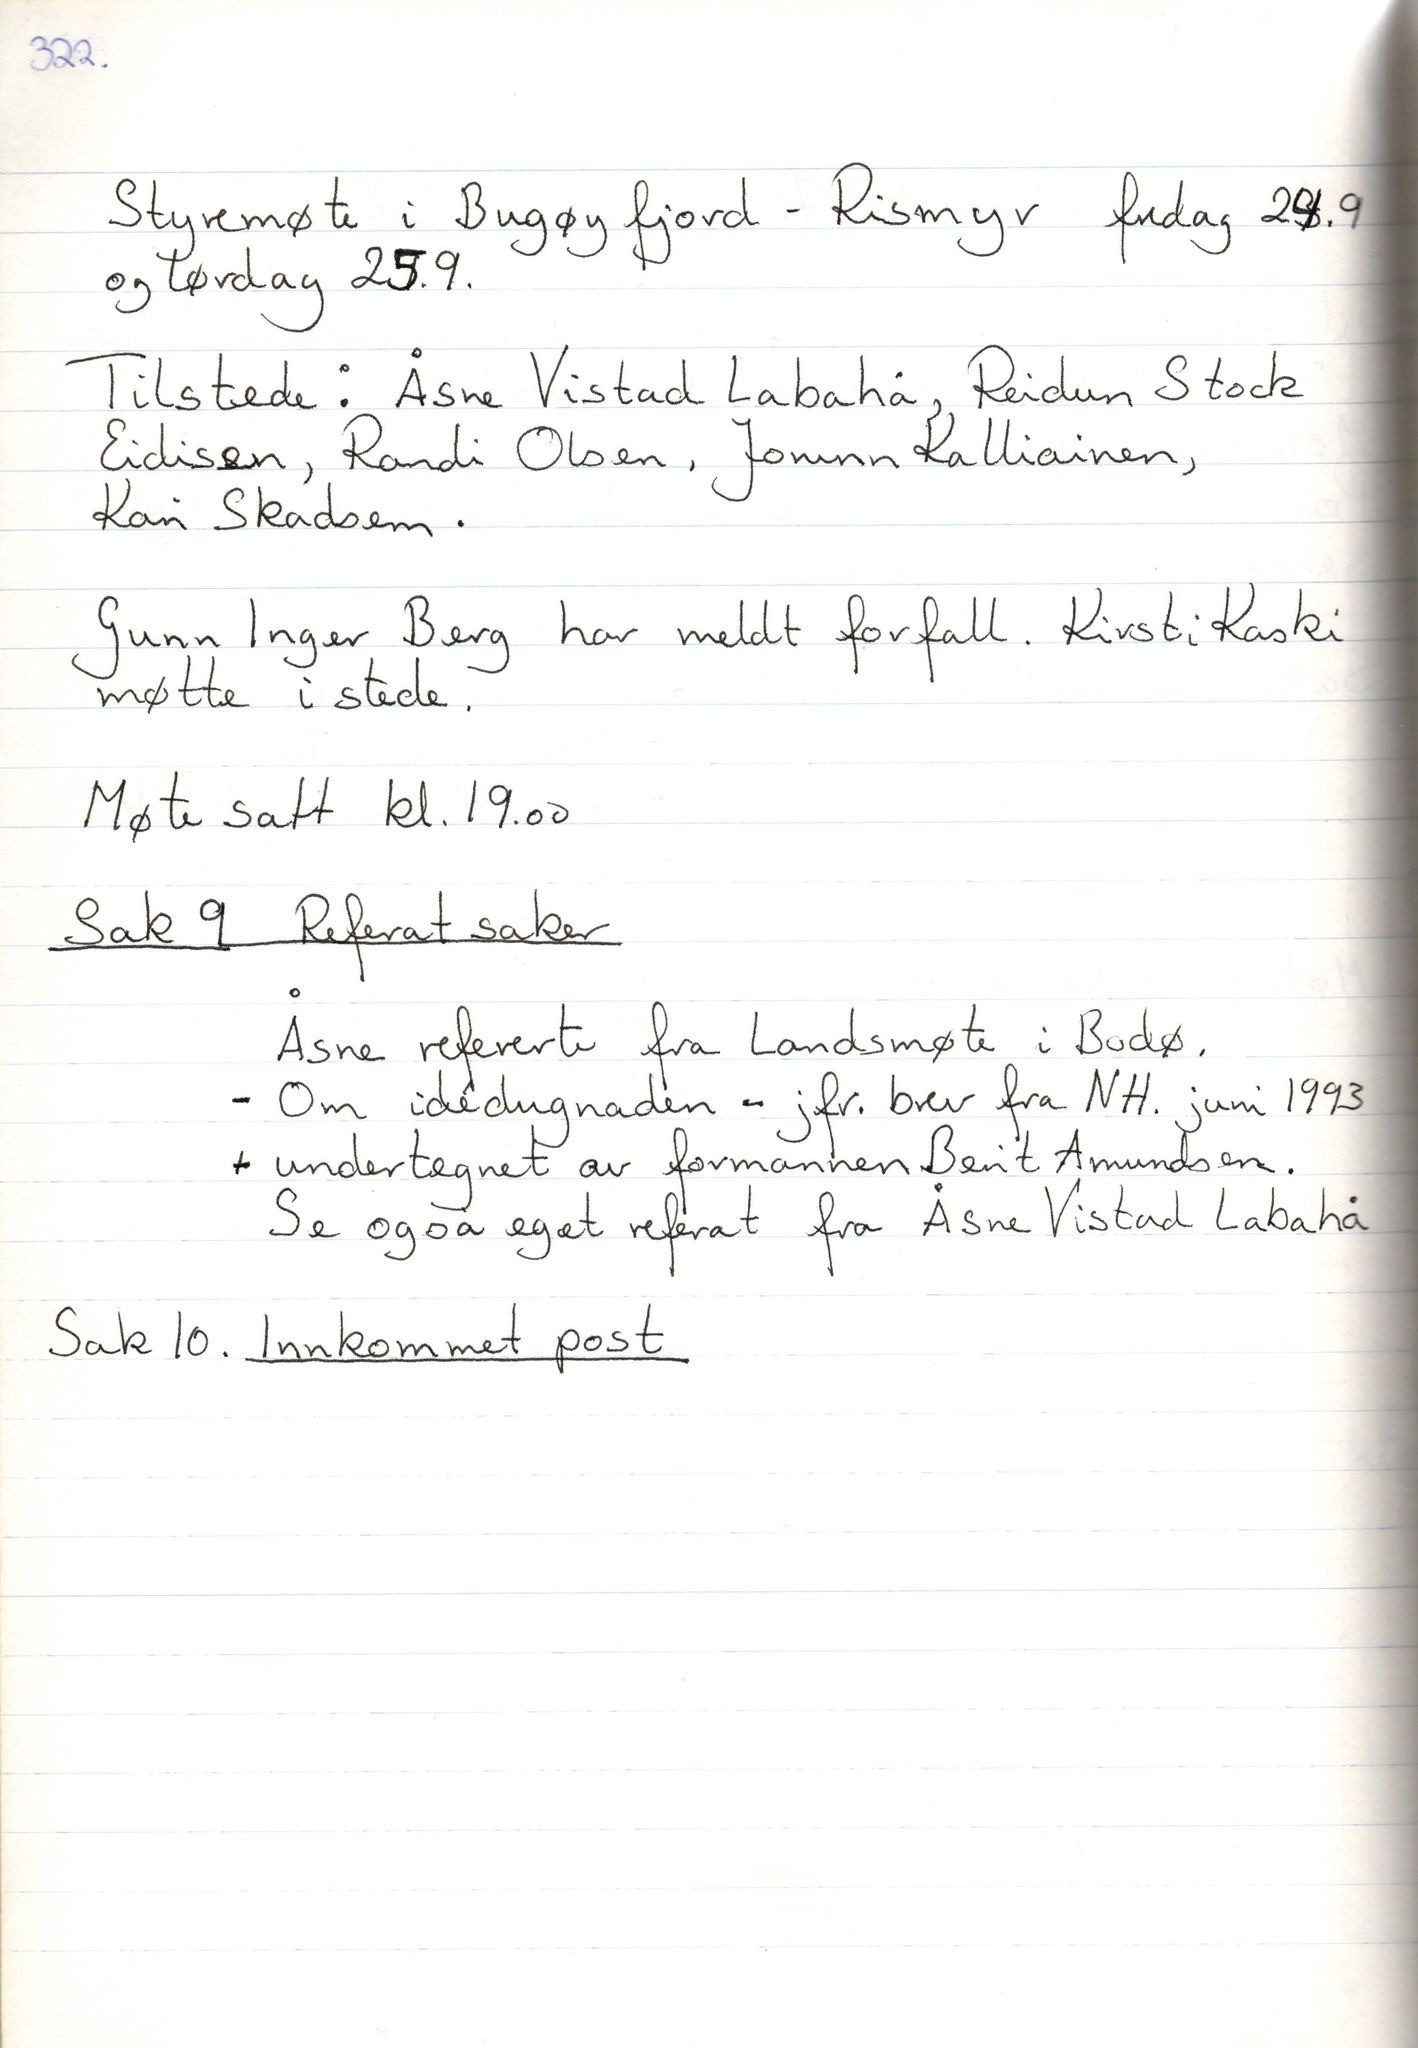 322.
Styremøte i Bugøyfjord - Rismyr fredag 24.9
og lørdag 25.9.
Tilstede: Åsne Vistad Labahå, Reidun Stock
Eidissen, Randi Olsen, Jorunn Kalliainen,
Kari Skadsem.
Gunn Inger Berg har meldt forfall. Kirsti Kaski
møtte i stede.
Møte satt kl. 19.00
Sak 9 Referatsaker
Åsne refererte fra Landsmøte i Bodø.
- Om idédugnaden - jfr. brev fra NH. juni 1993
+ undertegnet av formannen Berit Amundsen.
Se også eget referat fra Åsne Vistad Labahå
Sak 10. Innkommet post